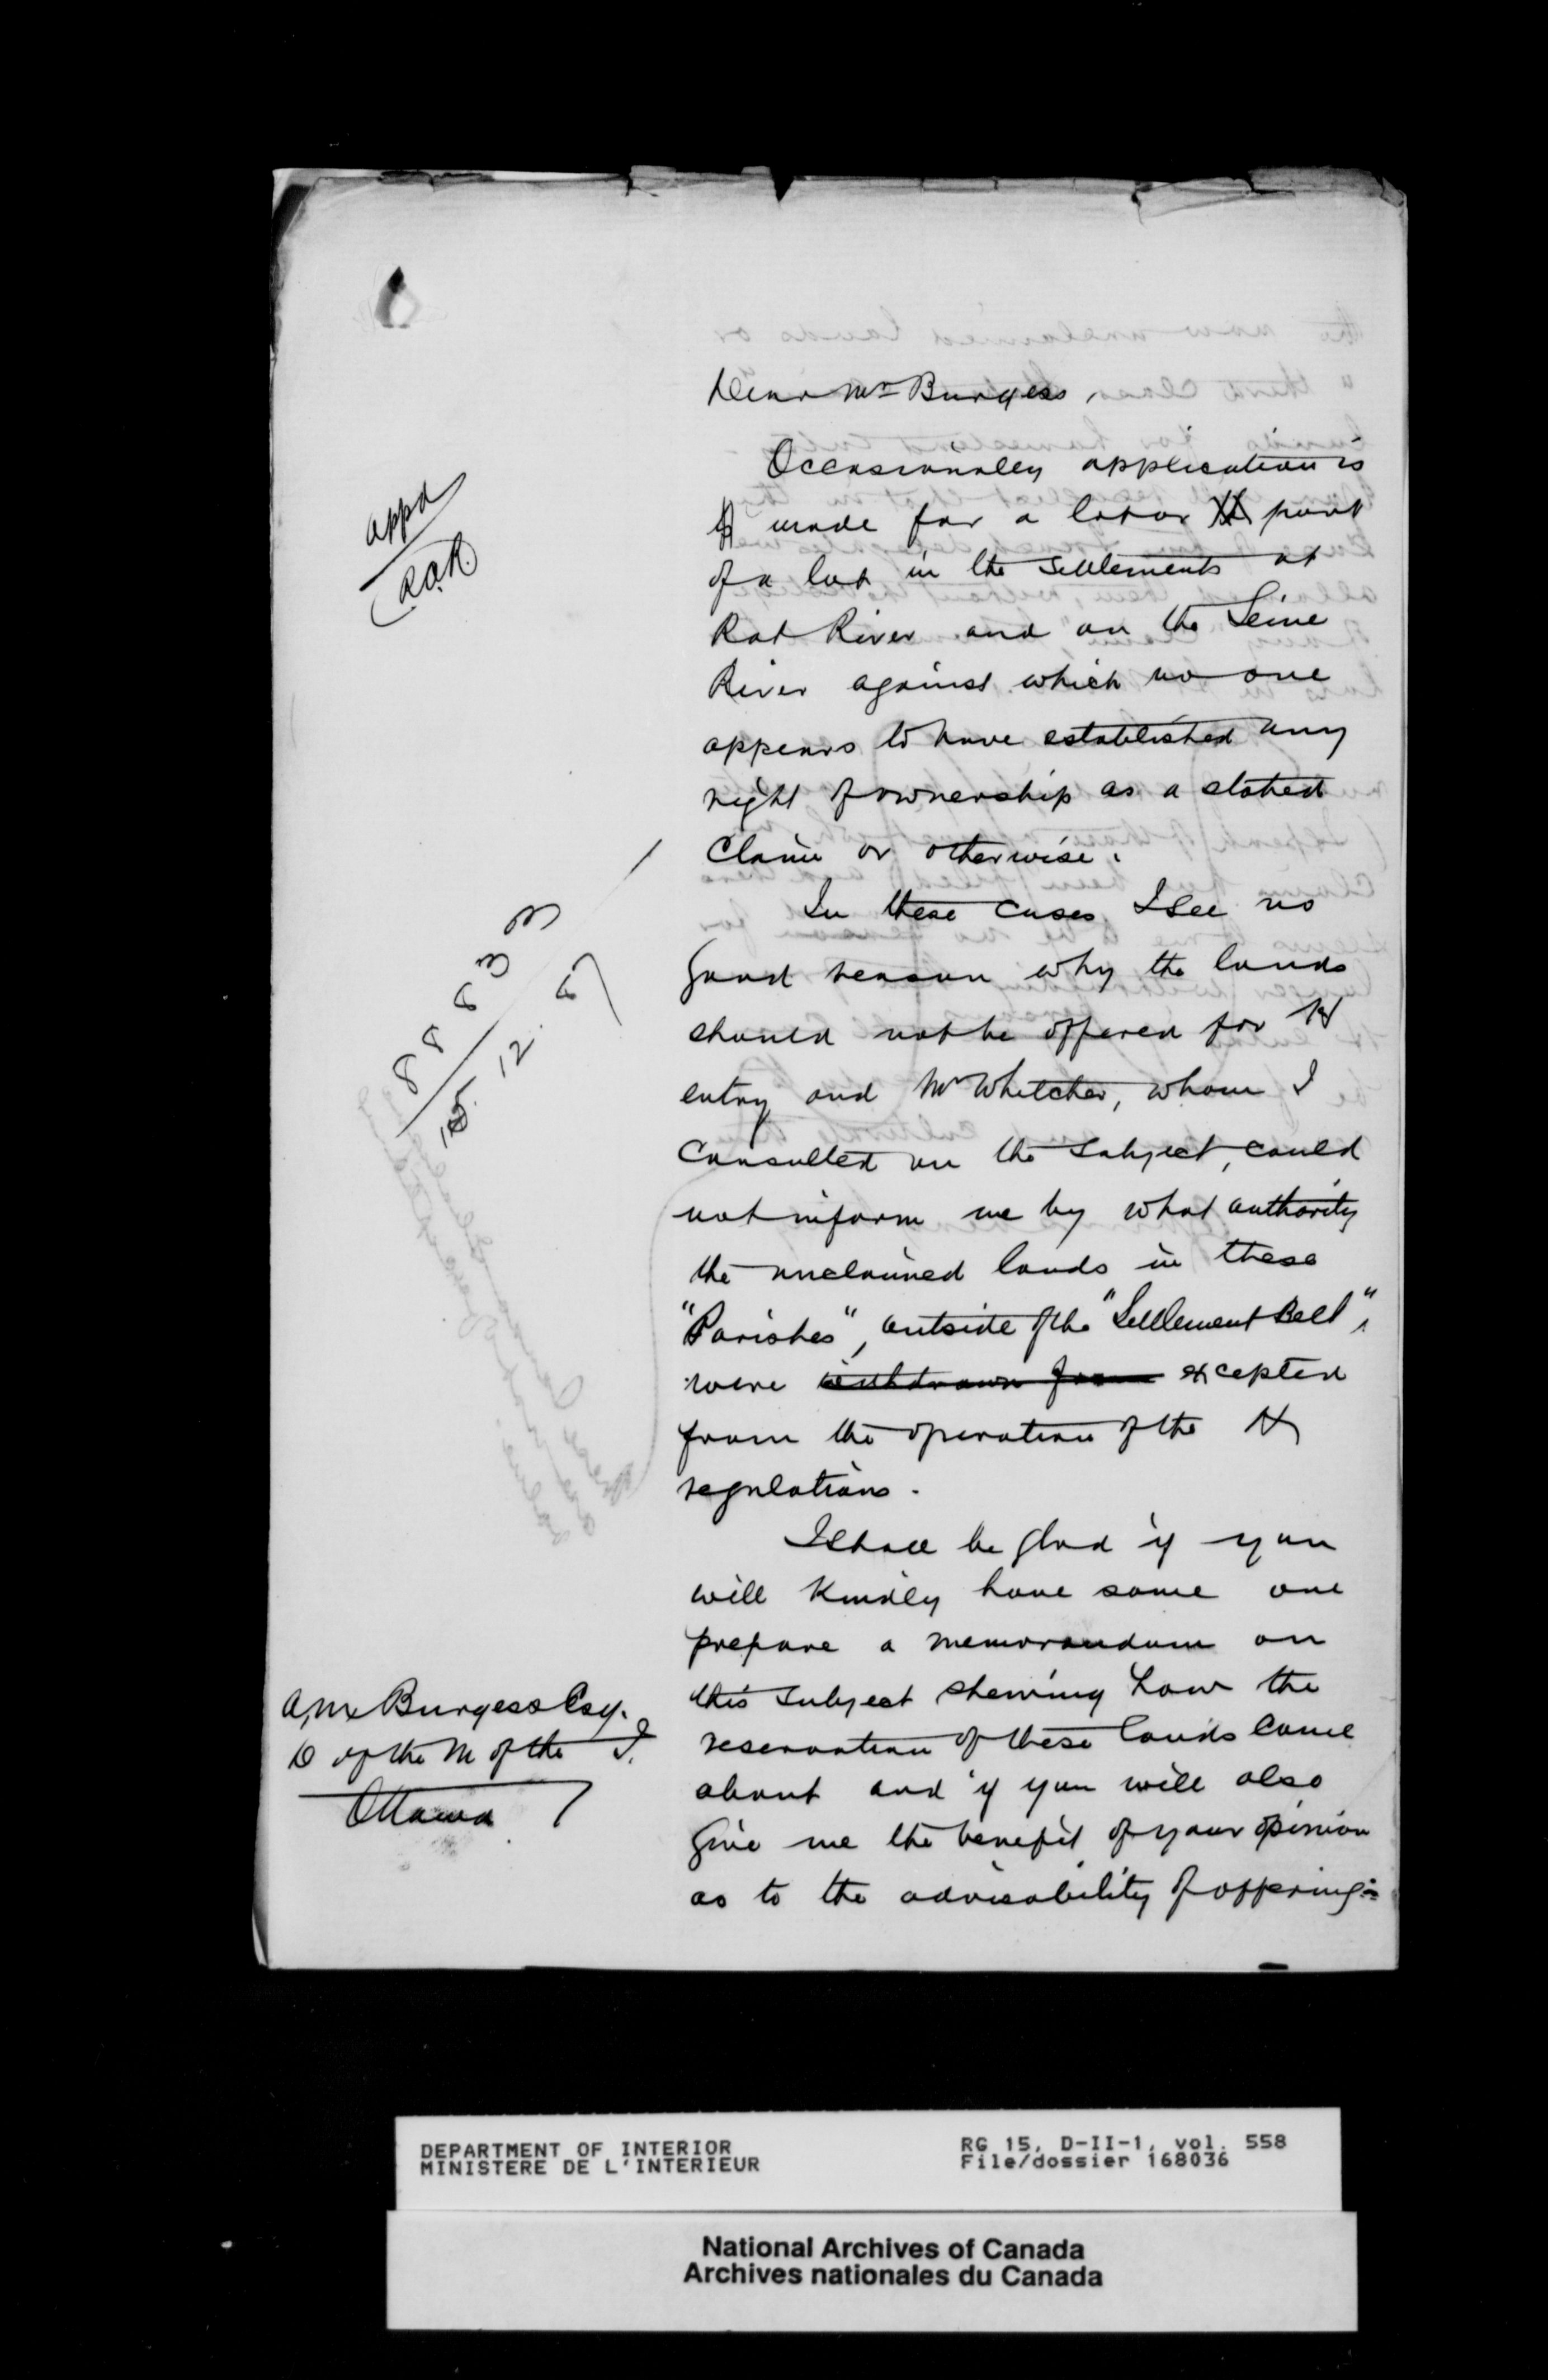 Dear Mr Burgess,
Occasionally application is
made for a lot or part
of a lot in the settlements at
Rat River and on the Seine
River against which no one
appears to have established any
right of ownership as a staked
Claim or otherwise.
In these cases I see no
good reason why the lands
should not be offered for Hd
entry and Mr Whitcher, whom I
Consulted on the subject, could
not inform me by what authority
the unclaimed lands in these
"Parishes", outside of the "Settlement Belt",
were withdrawn from excepted
from the operation of the Hd
regulations.
I shall be glad if you
will kindly have some one
prepare a memorandum on
this subject shewing how the
reservation of these lands came
about and if you will also
give me the benefit of your opinion
as to the advisability of offering
appd
RAR
88833
15.12.87
A M Burgess Esq.
D of the M of the I.
Ottawa
DEPARTMENT OF INTERIOR
MINISTERE DE L'INTERIEUR
RG 15, D-II-1, vol. 558
File/dossier 168036
National Archives of Canada
Archives nationales du Canada